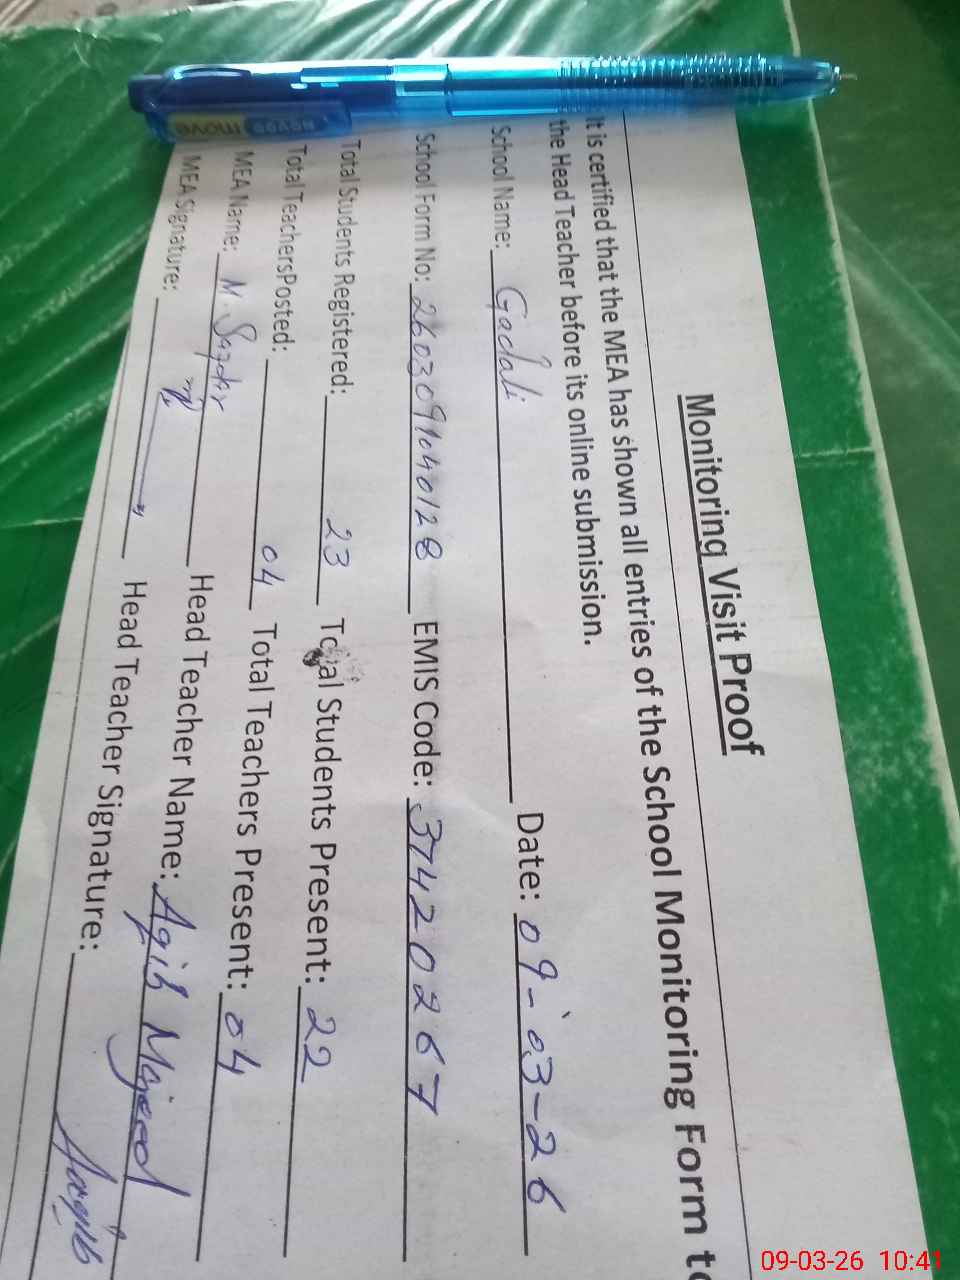 Monitoring Visit Proof
It is certified that the MEA has shown all entries of the School Monitoring Form to
the Head Teacher before its online submission.
School Name: Gadali Date: 09-03-26
School Form No: 2603091040128 EMIS Code: 37420267
Total Students Registered: 23 Total Students Present: 22
Total TeachersPosted: 04 Total Teachers Present: 04
MEA Name: M. Head Teacher Name: Aqib Majeed
MEA Signature: Head Teacher Signature: Aaqib
move
09-03-26 10:41